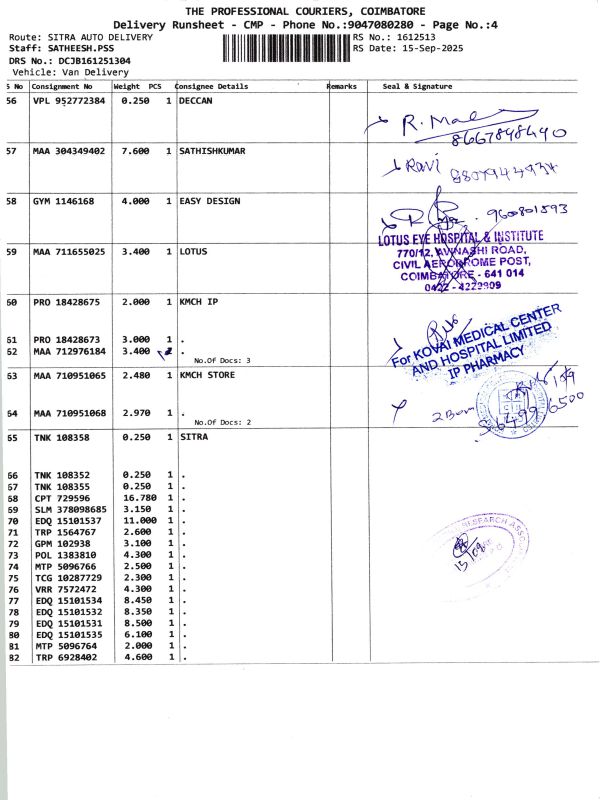 THE PROFESSIONAL COURIERS, COIMBATORE
Delivery Runsheet - CMP - Phone No.:9047080280 - Page No.:4
Route: SITRA AUTO DELIVERY RS No.: 1612513
Staff: SATHEESH.PSS RS Date: 15-Sep-2025
DRS No.: DCJB161251304
Vehicle: Van Delivery
S No Consignment No Weight PCS Consignee Details Remarks Seal & Signature
56 VPL 952772384 0.250 1 DECCAN
R. Mal
8667848440
57 MAA 304349402 7.600 1 SATHISHKUMAR
Ravi
8807944934
58 GYM 1146168 4.000 1 EASY DESIGN
9600801593
LOTUS EYE HOSPITAL & INSTITUTE
59 MAA 711655025 3.400 1 LOTUS
770/12, AVINASHI ROAD,
CIVIL AERODROME POST,
COIMBATORE - 641 014
0422 - 4229909
60 PRO 18428675 2.000 1 KMCH IP
61 PRO 18428673 3.000 1 .
62 MAA 712976184 3.400 1 .
No.Of Docs: 3
For KOVAI MEDICAL CENTER
AND HOSPITAL LIMITED
IP PHARMACY
63 MAA 710951065 2.480 1 KMCH STORE
64 MAA 710951068 2.970 1 .
No.Of Docs: 2
65 TNK 108358 0.250 1 SITRA
66 TNK 108352 0.250 1 .
67 TNK 108355 0.250 1 .
68 CPT 729596 16.780 1 .
69 SLM 378098685 3.150 1 .
70 EDQ 15101537 11.000 1 .
71 TRP 1564767 2.600 1 .
72 GPM 102938 3.100 1 .
73 POL 1383810 4.300 1 .
74 MTP 5096766 2.500 1 .
75 TCG 10287729 2.300 1 .
76 VRR 7572472 4.300 1 .
77 EDQ 15101534 8.450 1 .
78 EDQ 15101532 8.350 1 .
79 EDQ 15101531 8.500 1 .
80 EDQ 15101535 6.100 1 .
81 MTP 5096764 2.000 1 .
82 TRP 6928402 4.600 1 .
RESEARCH
15/09